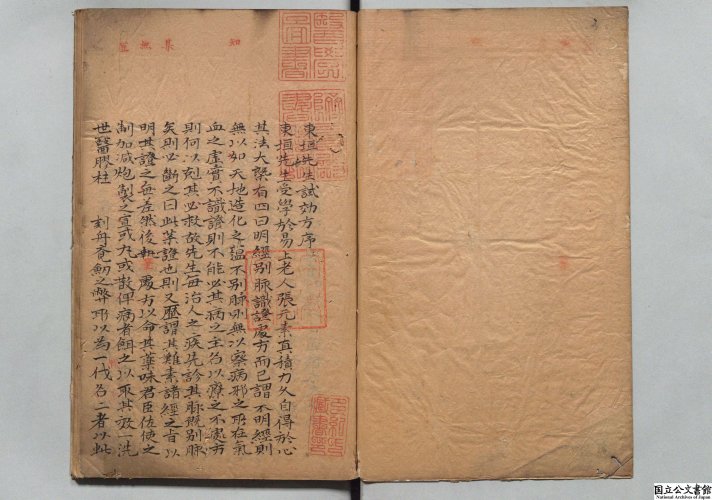 東垣先生試効方序
東垣先生受學於易上老人張元素真積力久自得於心
其法大槩有四曰明經別脉識證處方而已謂不明經則
無以知天地造化之蘊不別脉則無以察病邪之所在氣
血之虛實不識證則不能必其病之主名以療之不處方
則何以剋其必救故先生每治人之疾先診其脉旣別脉
矣則必斷之曰此某證也則又歷謂其難素諸經之旨以
明其證之無差然後執筆處方以命其藥味君臣佐使之
制加減炮製之宜或丸或散俾病者餌之以取其效一洗
世醫膠柱 刻舟 之弊所以為一代名工者以此
國立公文書館
National Archives of Japan